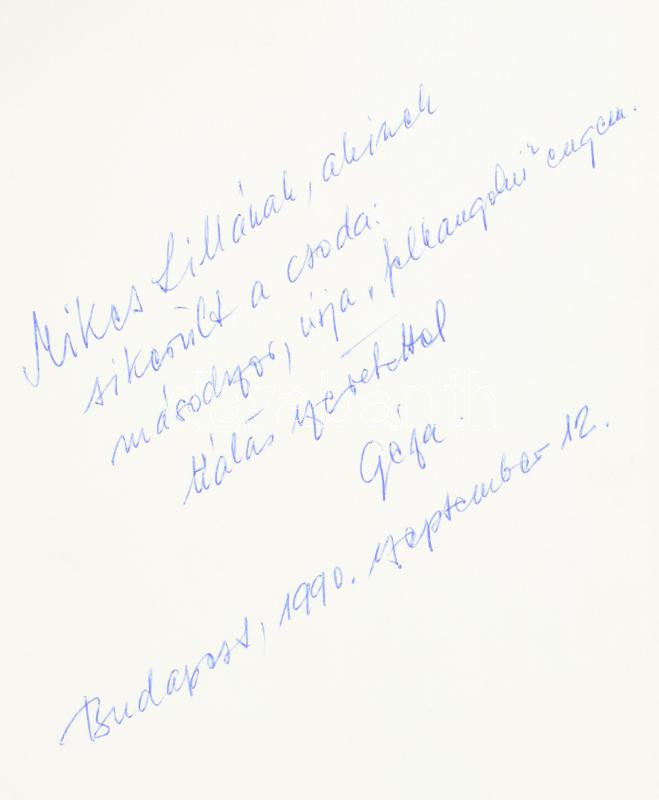 Mikes Lillának, akinek
sikerült a csoda:
másodszor, újra „felhangolni" engem.
Hálás szeretettel
Géza.
Budapest, 1990. szeptember 12.